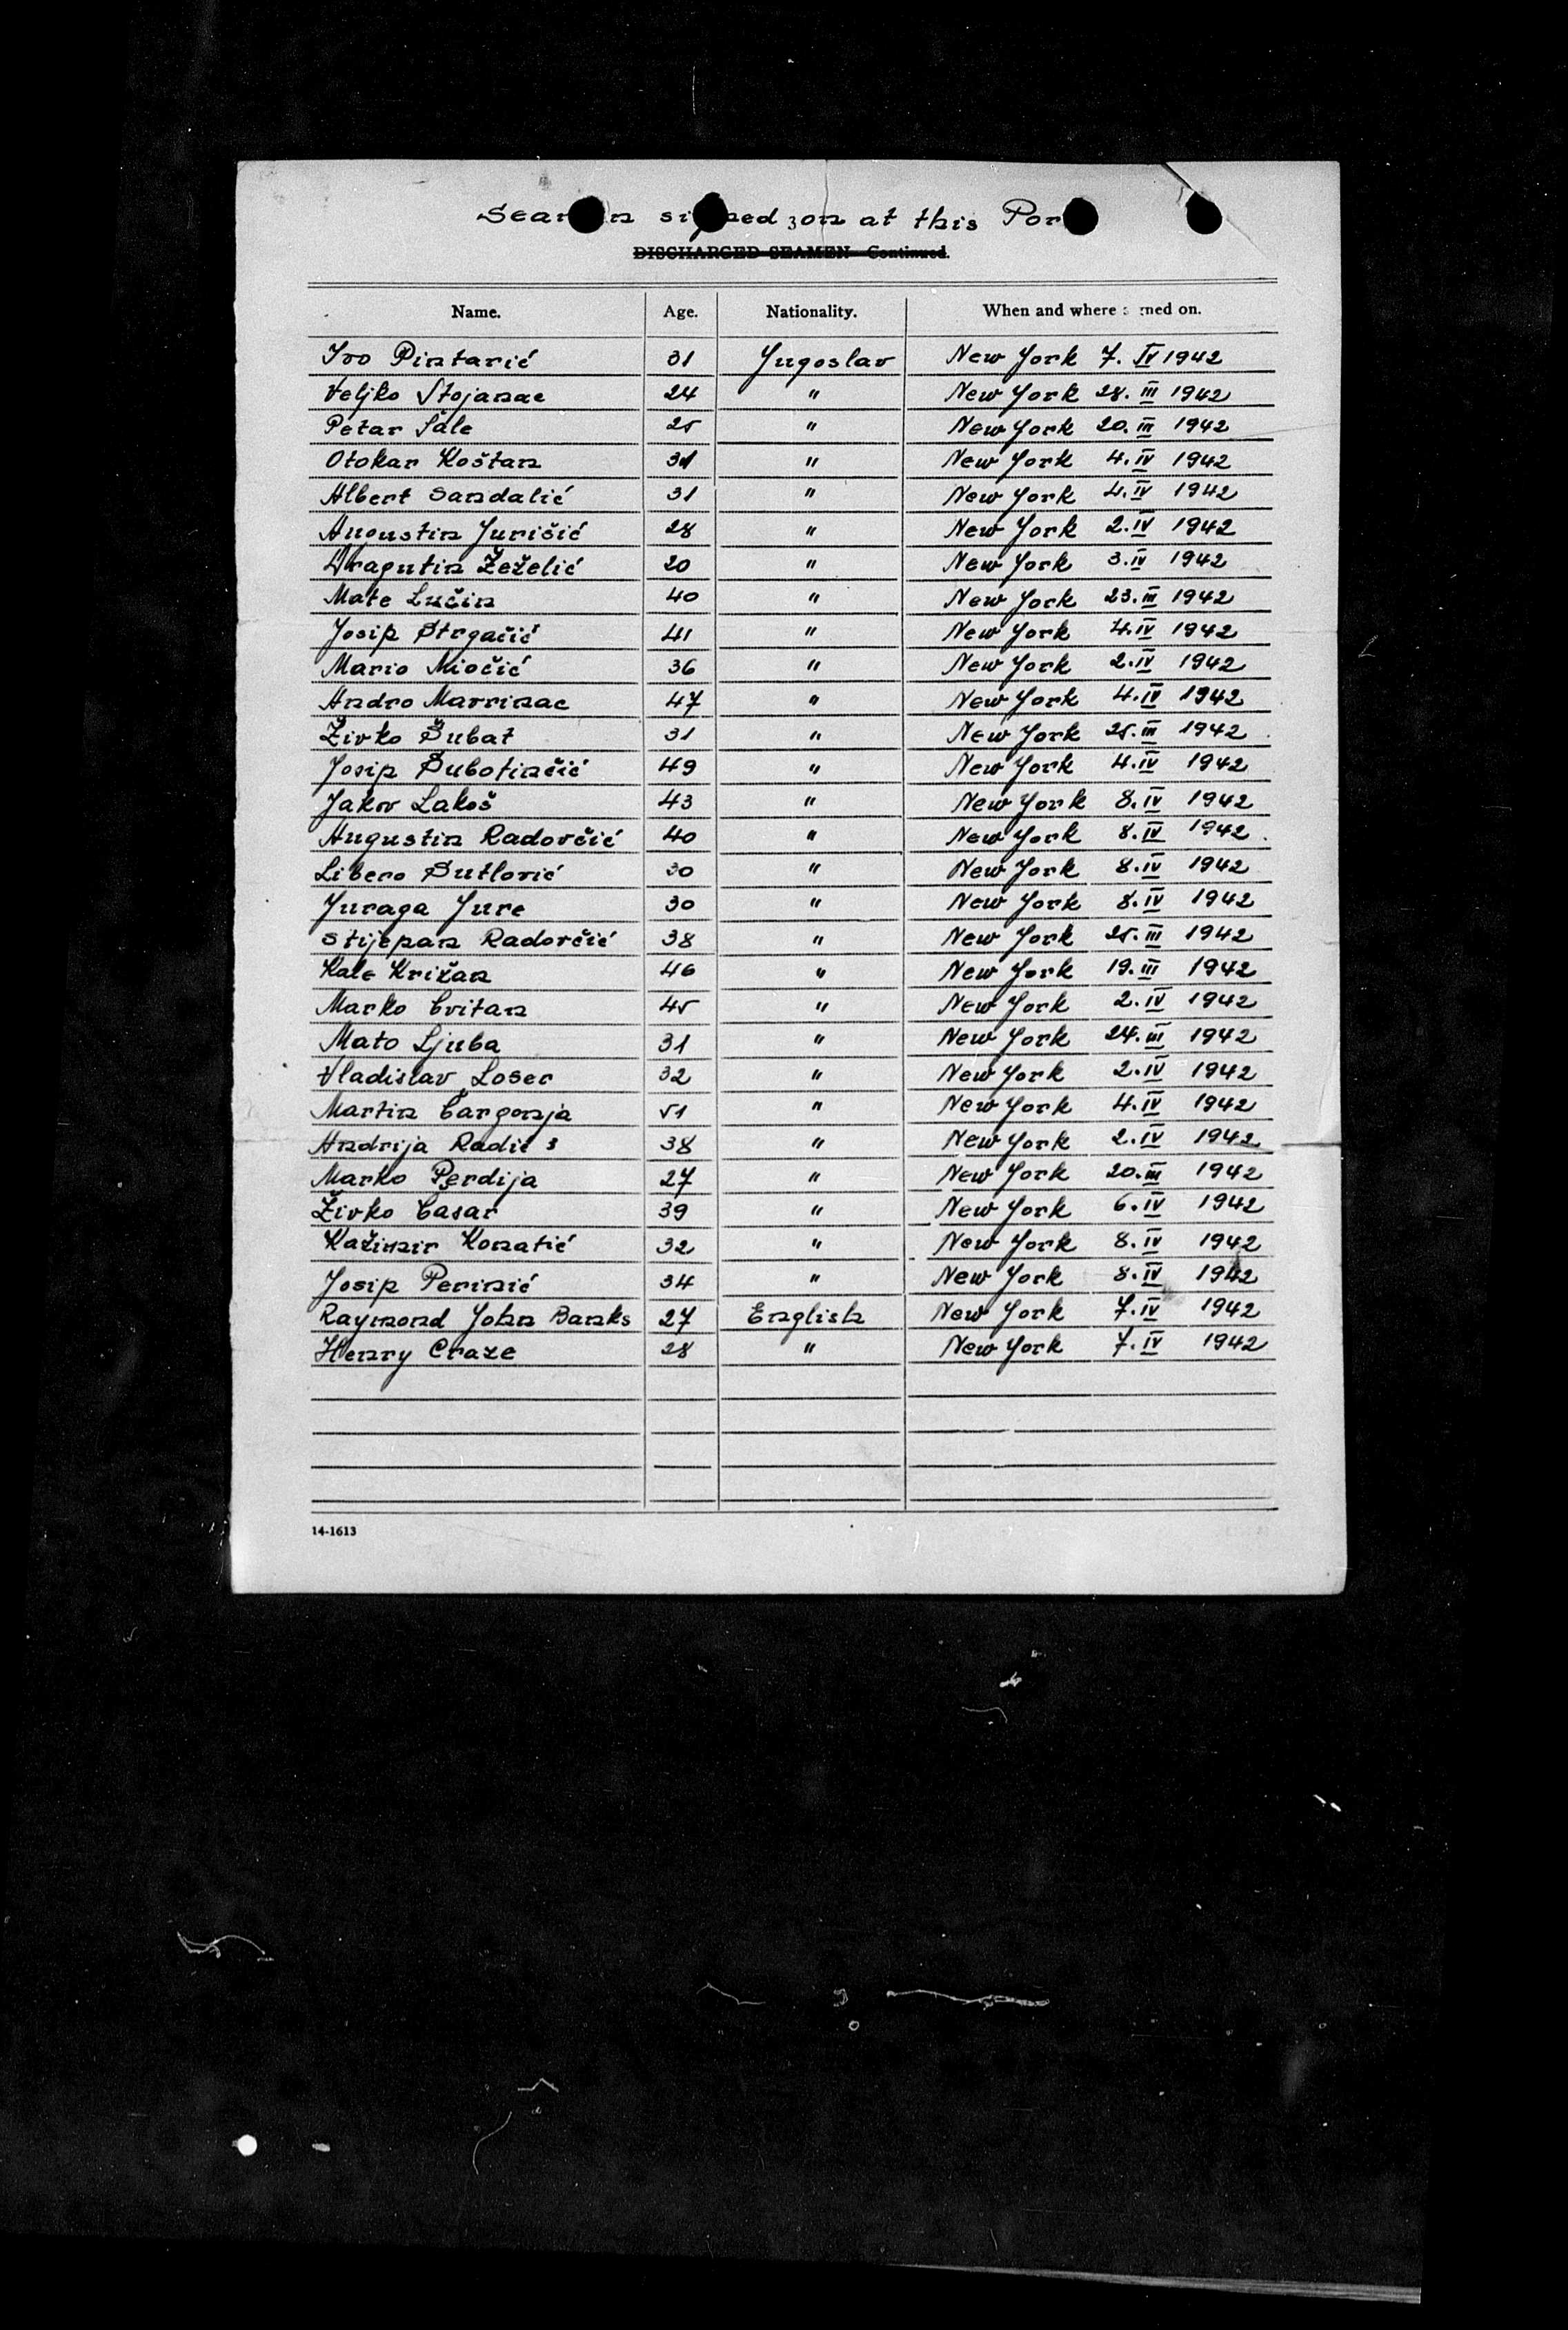 Seamen signed on at this Port
DISCHARGED SEAMEN—Continued.
Name. Age. Nationality. When and where signed on.
Ivo Pintarić 31 Yugoslav New York 7. IV 1942
Veljko Stojanac 24 " New York 28. III 1942
Petar Šale 25 " New York 20. III 1942
Otokar Koštan 31 " New York 4. IV 1942
Albert Sandalić 31 " New York 4. IV 1942
Augustin Jurišić 28 " New York 2. IV 1942
Dragutin Žeželić 20 " New York 3. IV 1942
Mate Lučin 40 " New York 23. III 1942
Josip Strgačić 41 " New York 4. IV 1942
Mario Miočić 36 " New York 2. IV 1942
Andro Mavrinac 47 " New York 4. IV 1942
Živko Šubat 31 " New York 25. III 1942
Josip Šubotinčić 49 " New York 4. IV 1942
Jakov Lakoš 43 " New York 8. IV 1942
Augustin Radovčić 40 " New York 8. IV 1942
Libero Sutlović 30 " New York 8. IV 1942
Juraga Jure 30 " New York 8. IV 1942
Stijepan Radovčić 38 " New York 25. III 1942
Kale Križan 46 " New York 19. III 1942
Marko Cvitan 45 " New York 2. IV 1942
Mato Ljuba 31 " New York 24. III 1942
Vladislav Loser 32 " New York 2. IV 1942
Martin Čargonja 51 " New York 4. IV 1942
Andrija Radić 38 " New York 2. IV 1942
Marko Perdija 27 " New York 20. III 1942
Živko Casar 39 " New York 6. IV 1942
Kažimir Konatić 32 " New York 8. IV 1942
Josip Perinić 34 " New York 8. IV 1942
Raymond John Banks 27 English New York 7. IV 1942
Henry Craze 28 " New York 7. IV 1942
14-1613